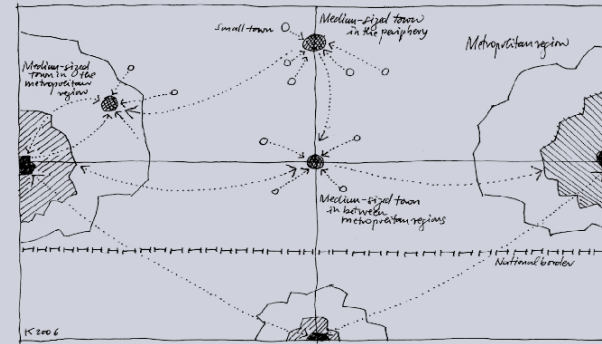 Small town
Medium-sized town
in the periphery
Metropolitan region
Medium-sized
town in the
metropolitan
region
Medium-sized town
in between
metropolitan regions
National border
K 2006